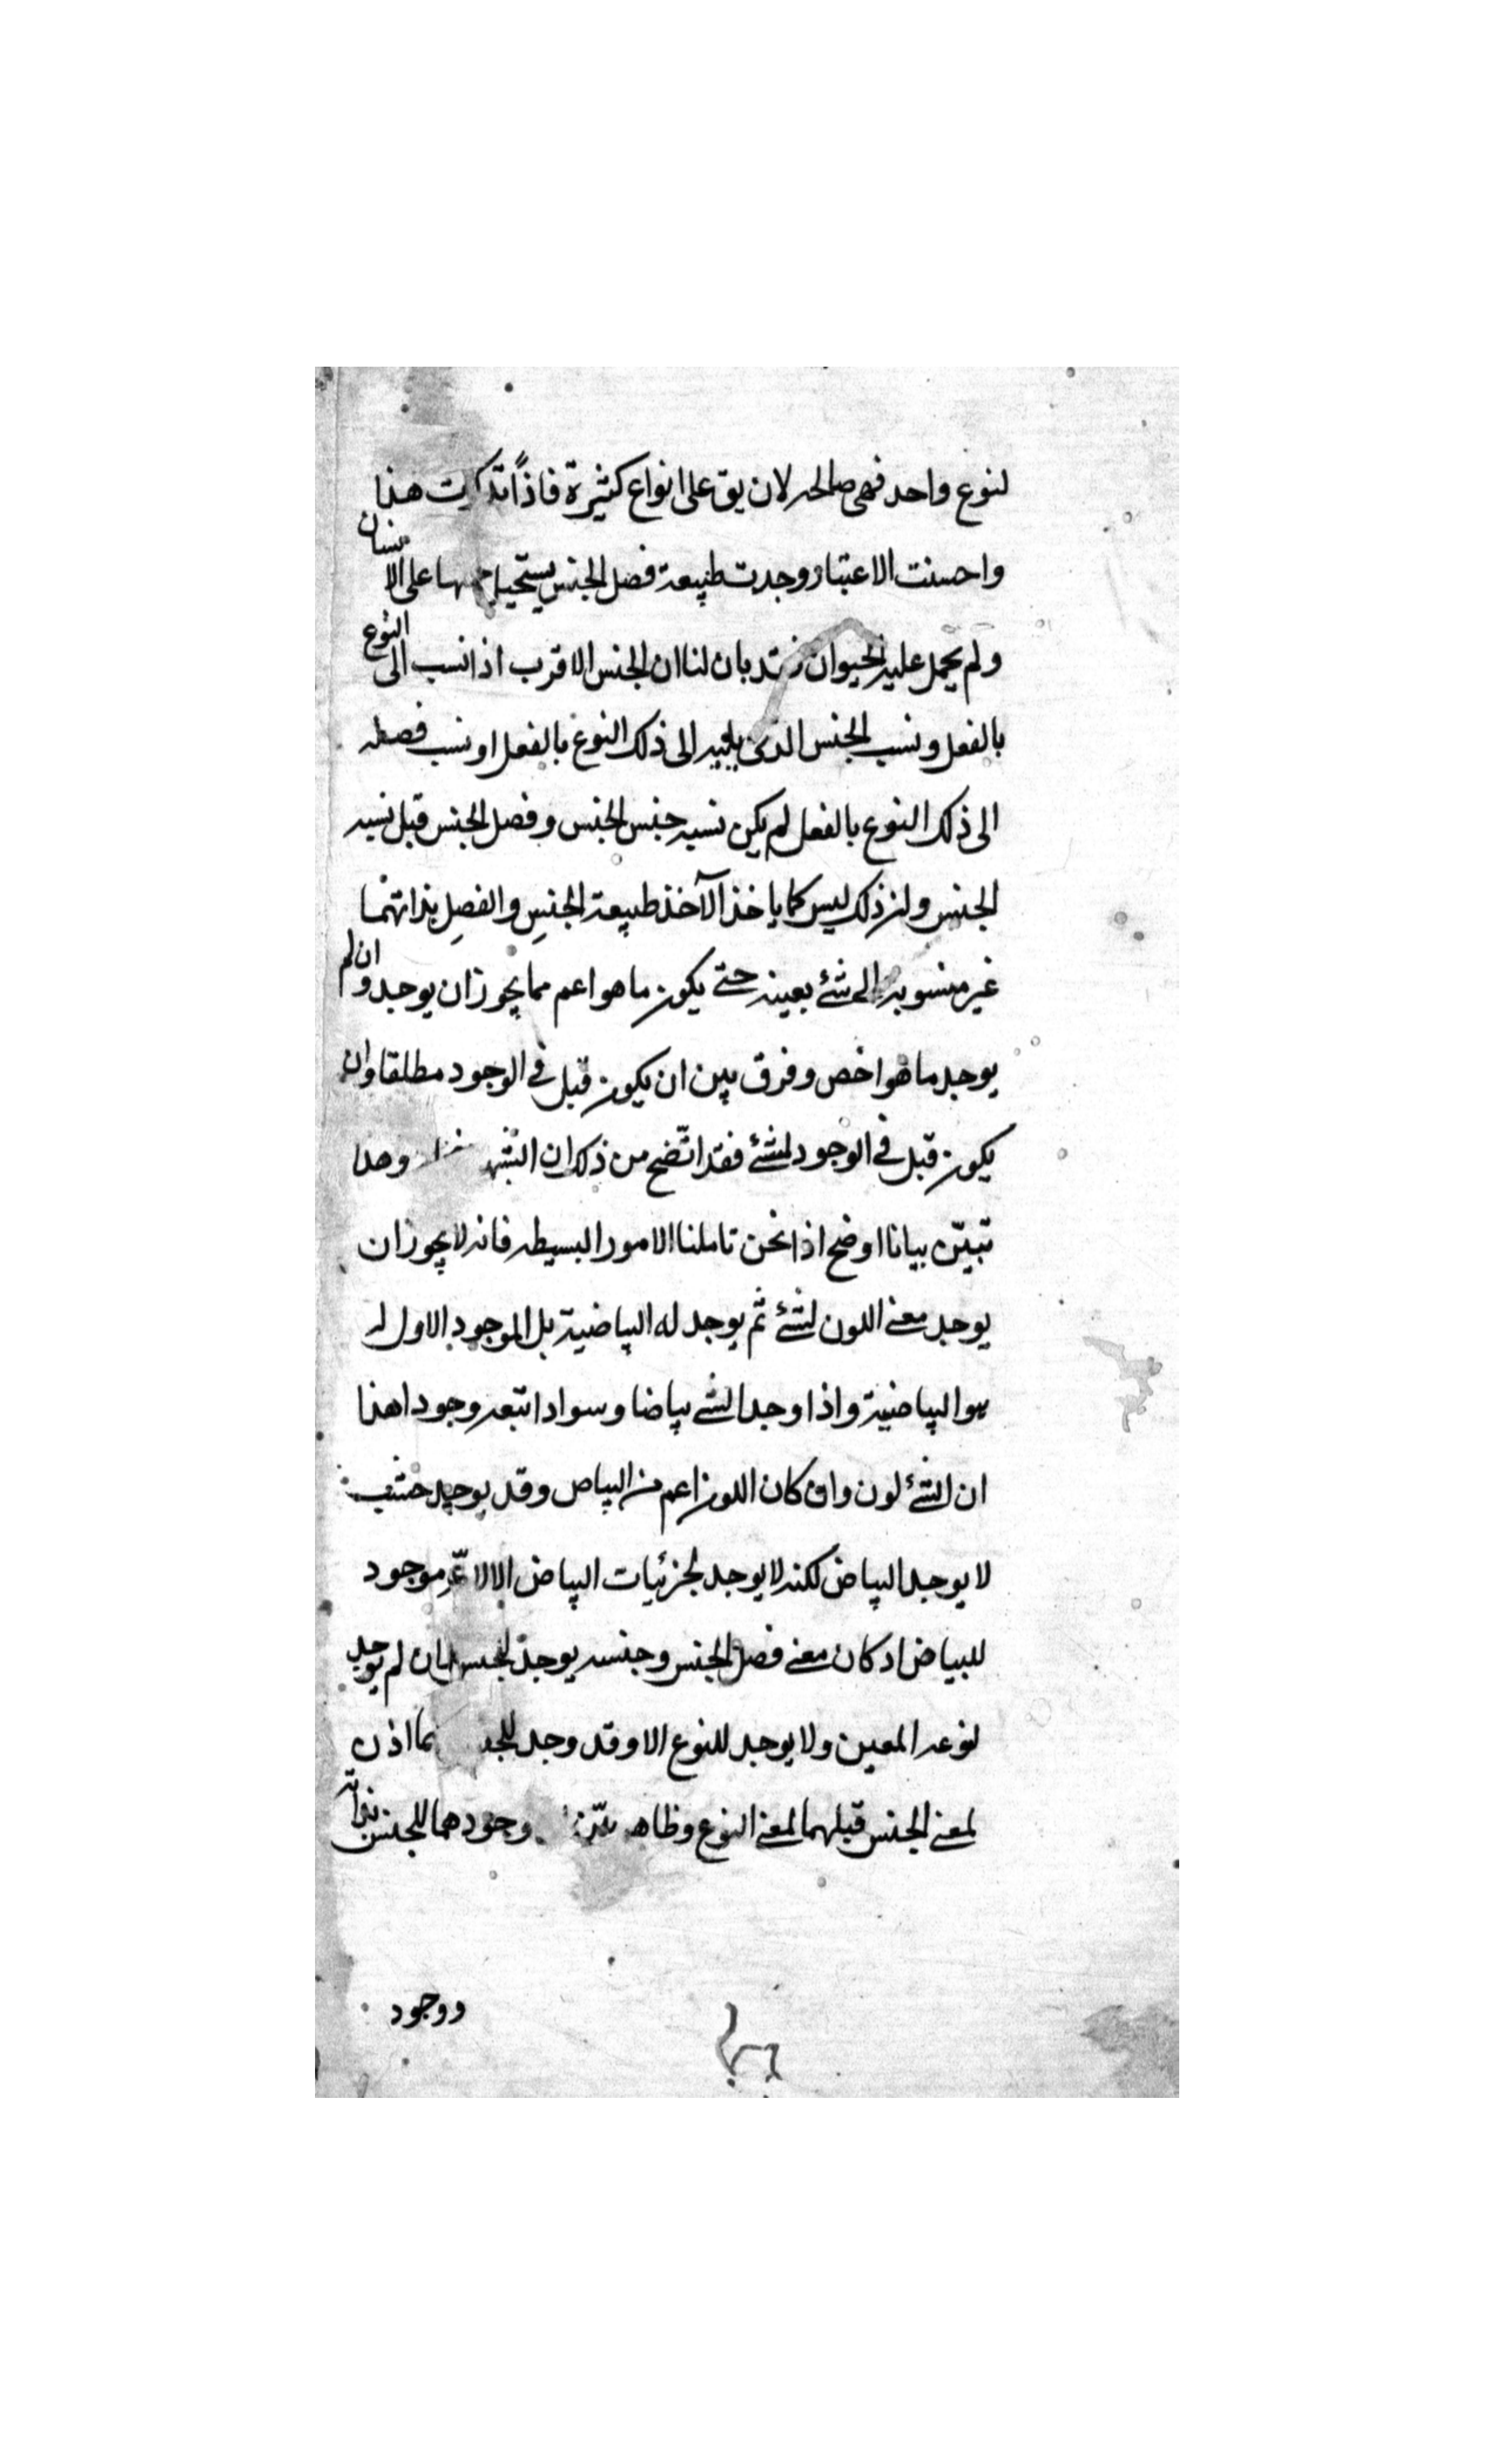 لنوع واحد فهى صالحه لان يق على انواع كثيرة فاذا تذكرت هذا
واحسنت الاعتبار وجدت طبيعة فصل الجنس يستحيل حملها على الانسان
ولم يحمل عليه الحيوان فقد بان لنا ان الجنس الاقرب اذا نسب الى النوع
بالفعل ونسب الجنس الذى يليه الى ذلك النوع بالفعل او نسب فصله
الى ذلك النوع بالفعل لم يكن نسبه جنس الجنس وفصل الجنس قبل نسبه
الجنس ولن ذلك ليس كما ياخذ الآخذ طبيعة الجنس والفصل بذاتهما
غير منسوبه الى شئ بعينه حتى يكون ما هو اعم مما يجوز ان يوجد وان لم
يوجد ما هو اخص وفرق بين ان يكون قبل فى الوجود مطلقا وان
يكون قبل فى الوجود لشئ فقد اتّضح من ذلك ان وهذا
تبيّن بيانا اوضح اذا نحن تاملنا الامور البسيطه فانه لا يجوز ان
يوجد معنى اللون لشئ ثم يوجد له البياضية بل الموجود الاول له
هو البياضية واذا وجد الشئ بياضا وسوادا تبعه وجود هذا
ان الشئ لون وان كان اللون اعم من البياض وقد يوجد حيث
لا يوجد البياض لكنه لا يوجد لجزئيات البياض الا لانّه موجود
للبياض اذ كان معنى فصل الجنس وجنسه يوجد للجنس ان لم يوجد
لنوعه المعين ولا يوجد للنوع الا وقد وجد فهما اذن
لمعنى الجنس قبلهما لمعنى النوع وظاهر بيّن وجودهما للجنس بذاته
ووجود